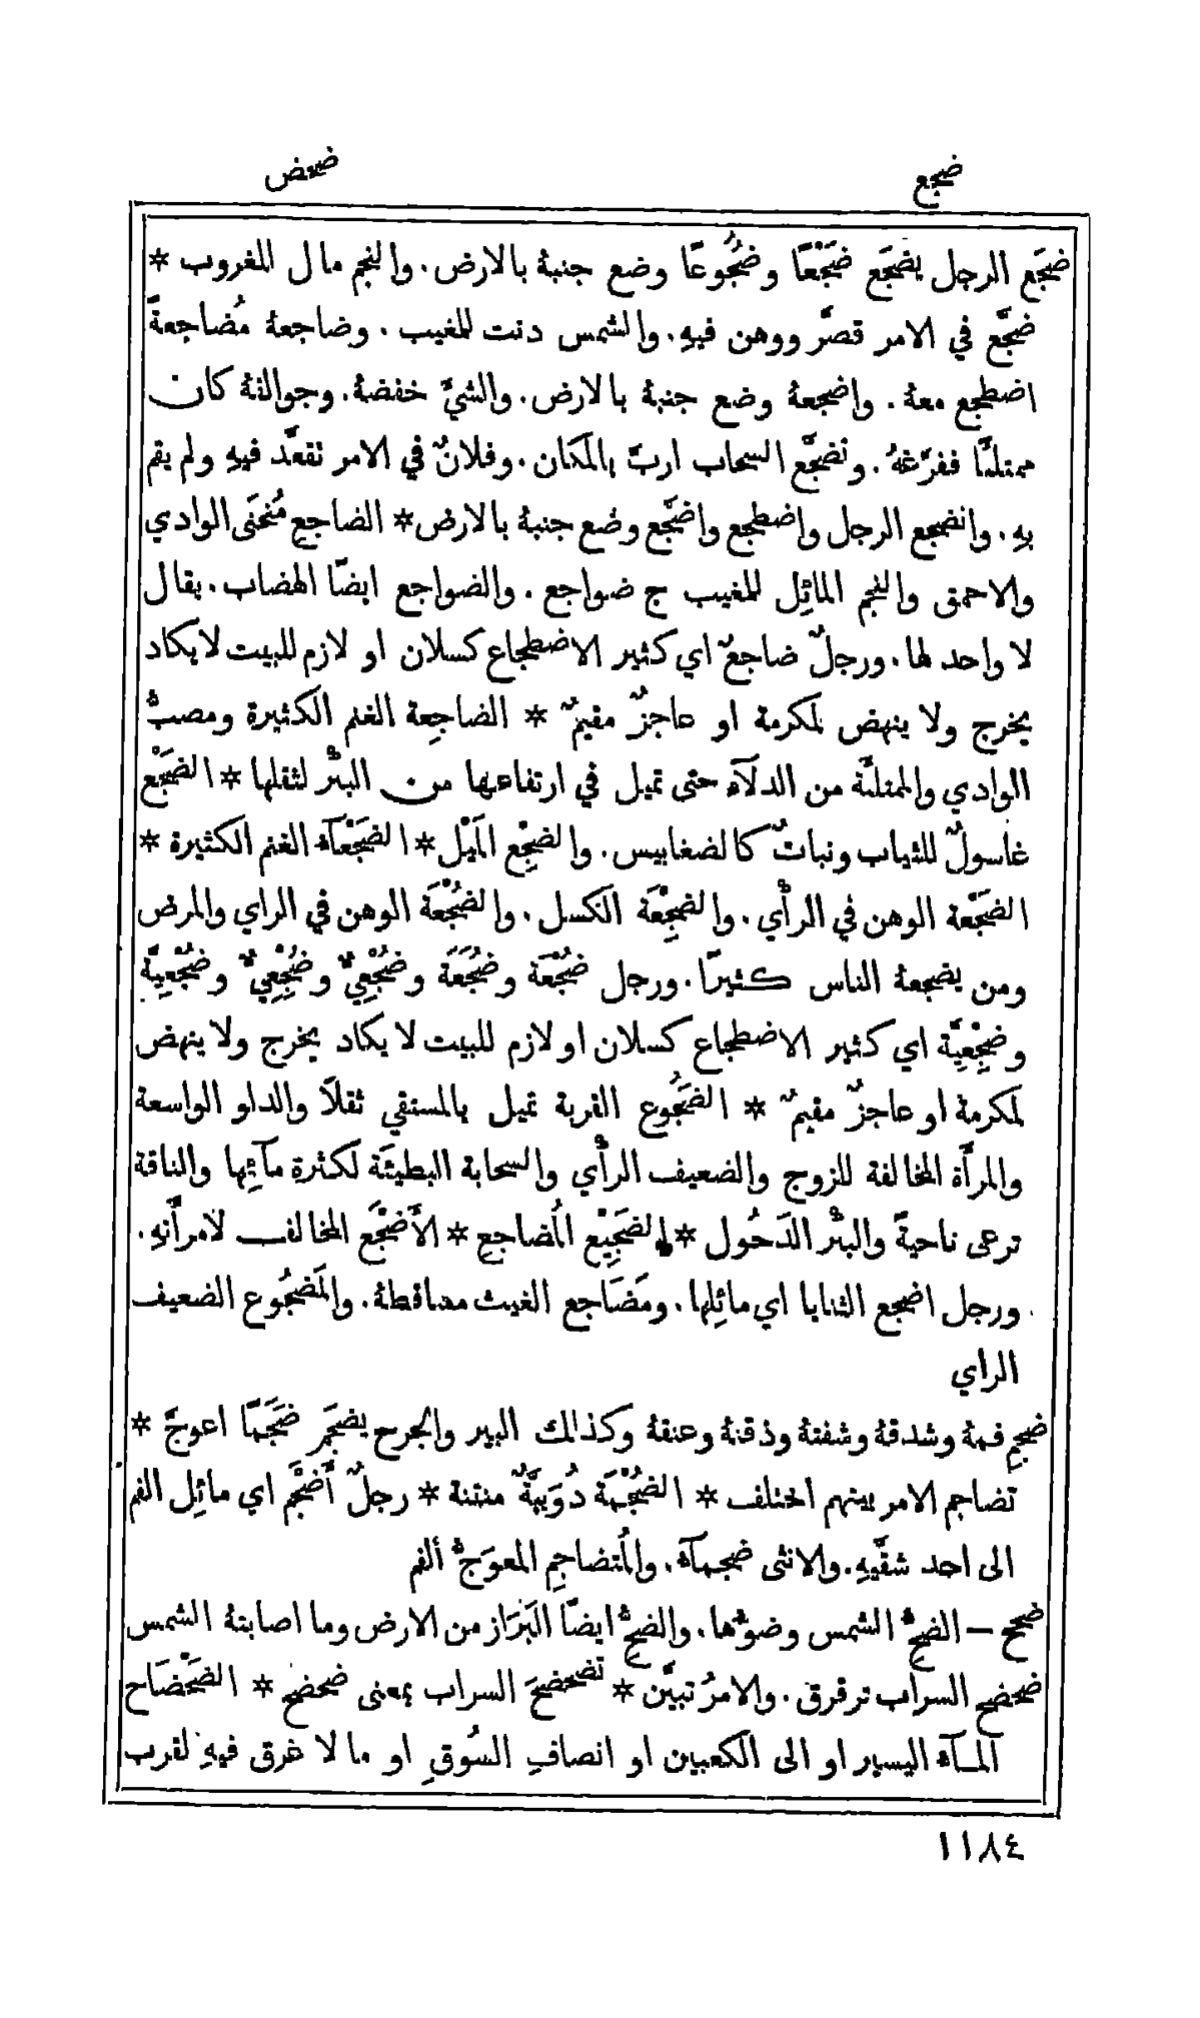 ضجع
ضحض
ضجَع الرجل يضجَع ضَجْعًا وضُجُوعًا وضع جنبهُ بالارض. والنجم مال للغروب *
ضجَّع في الامر قصَّر ووهن فيهِ. والشمس دنت للمغيب. وضاجعهُ مُضاجعةً
اضطجع معهُ. واضجعهُ وضع جنبهُ بالارض. والشيَّ خفضهُ. وجوالقهُ كان
ممتلئًا ففرَّغهُ. وتضجَّع السحاب اربَّ بالمكان. وفلانٌ في الامر تقعَّد فيهِ ولم يقم
بهِ. وانضجع الرجل واضطجع واضَّجع وضع جنبهُ بالارض * الضاجع مُنحَنَى الوادي
والاحمق والنجم المائِل للمغيب ج ضواجع. والضواجع ايضًا الهضاب. يقال
لا واحد لها. ورجلٌ ضاجعٌ اي كثير الاضطجاع كسلان او لازم للبيت لا يكاد
يخرج ولا ينهض لمكرمة او عاجزٌ مقيمٌ * الضاجِعة الغنم الكثيرة ومصبُّ
الوادي والممتلئَة من الدلآء حتى تميل في ارتفاعها من البئْر لثقلها * الضَجْع
غاسولٌ للثياب ونباتٌ كالضغابيس. والضِجْع المَيْل * الضَجْعآء الغنم الكثيرة *
الضَجْعة الوهن في الرأْي. والضِجْعَة الكسل. والضُجْعَة الوهن في الراي والمرض
ومن يضجعهُ الناس كثيرًا. ورجل ضُجْعَة وضُجَعَة وضُجْعِيٌّ وضِجْعِيٌّ وضُجْعِيَّة
وضِجْعِيَّة اي كثير الاضطجاع كسلان او لازم للبيت لا يكاد يخرج ولا ينهض
لمكرمة او عاجزٌ مقيمٌ * الضَجُوع القربة تميل بالمستقي ثقلًا والدلو الواسعة
والمرأَة المخالفة للزوج والضعيف الرأْي والسحابة البطيئَة لكثرة مآئِها والناقة
ترعى ناحيةً والبئْر الدَحُول * الضَجِيْع المُضاجع * الأَضْجَع المخالف لامرأَتهِ.
ورجل اضجع الثنايا اي مائِلها. ومَضَاجع الغيث مساقطهُ. والمَضجُوع الضعيف
الراي
ضجِم فمهُ وشدقهُ وشفتهُ وذقنهُ وعنقهُ وكذلك البير والجرح يضجَم ضَجَمًا اعوجَّ *
تضاجم الامر بينهم اختلف * الضُجْمَة دُوَيبَّةٌ منتنة * رجلٌ أَضْجَم اي مائِل الفم
الى احد شقَّيهِ. والانثى ضجمآء. والمُتضاجِم المعوَجُّ الفم
ضحح – الضِحُّ الشمس وضوءُها. والضِحُّ ايضًا البَرَاز من الارض وما اصابتهُ الشمس
ضحضح السراب ترقرق. والامرُ تبيَّن * تضحضحَ السراب بمعنى ضحضح * الضَحْضَاح
المـآء اليسير او الى الكعبين او انصافِ السُوقِ او ما لا غرق فيهِ لقرب
١١٨٤